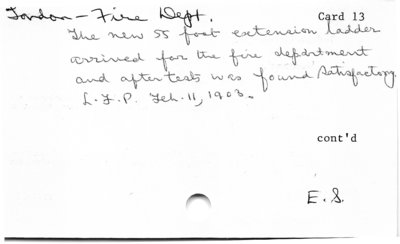 London - Fire Dept. Card 13
The new 55 foot extension ladder
arrived for the fire department
and after tests was found satisfactory.
L.F.P. Feb. 11, 1903.
cont'd
E.S.